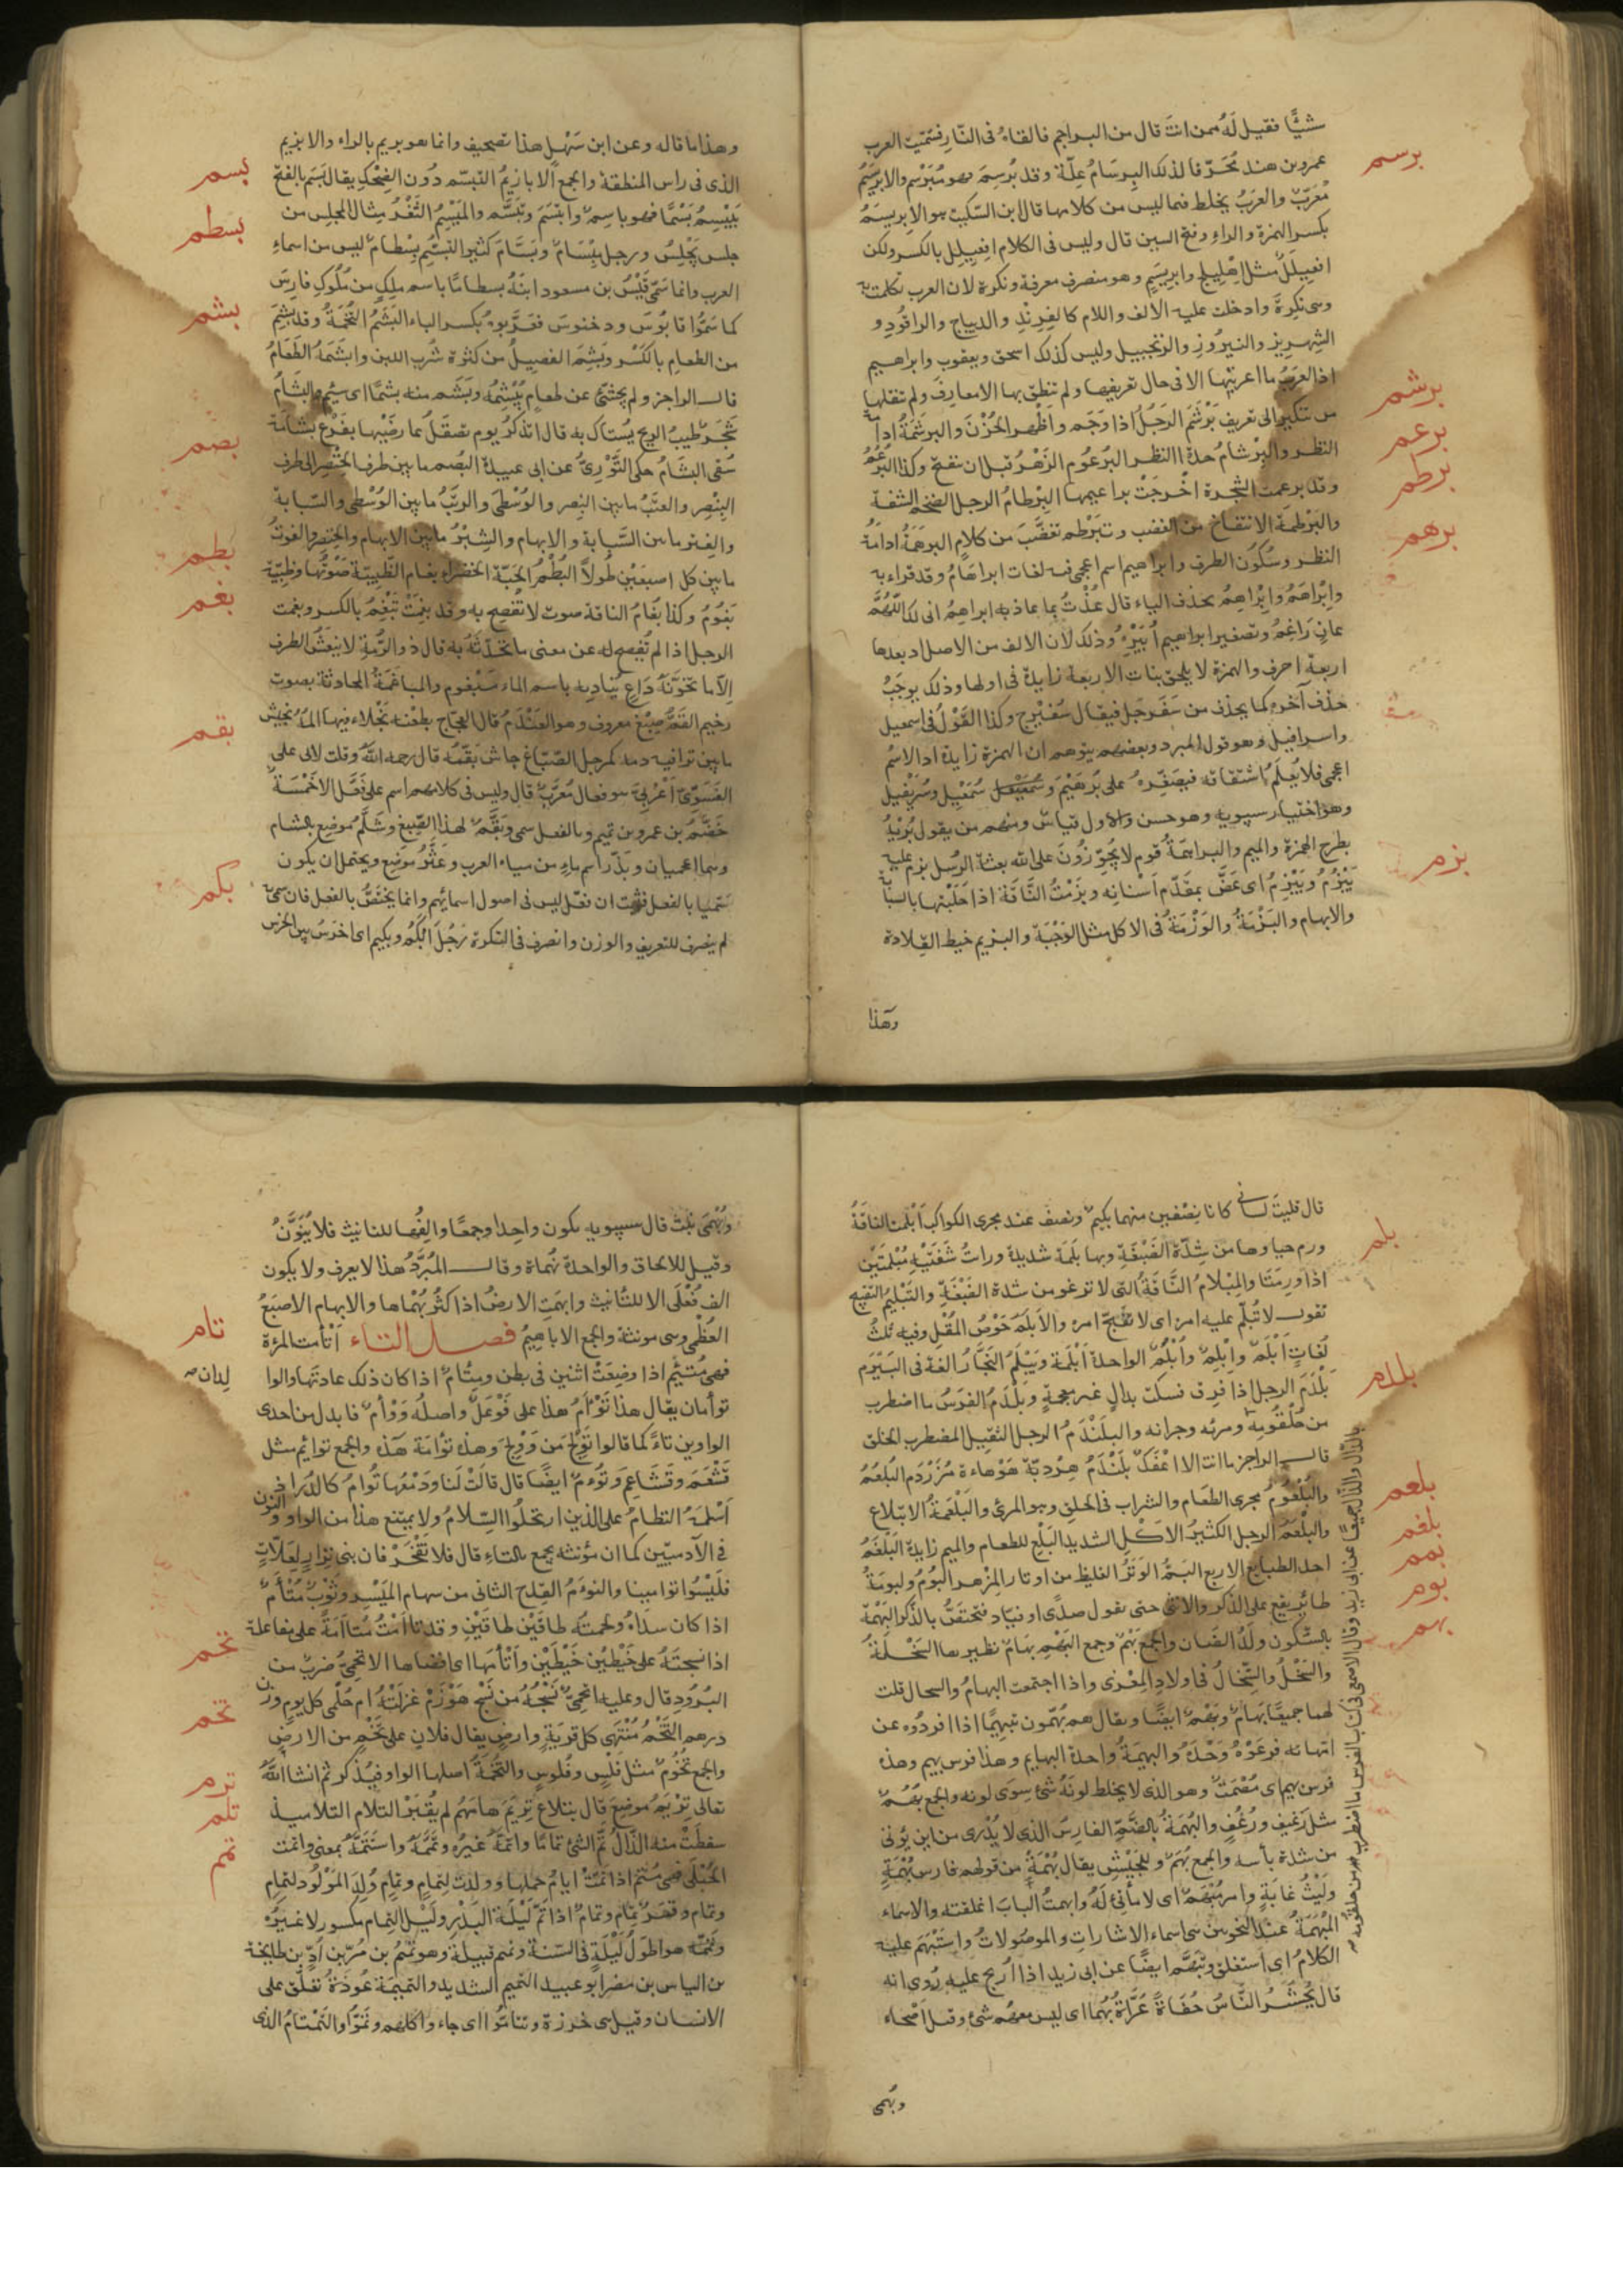 شيًّا فقيل لَهُ ممن انتَ قال من البراجم فالقاهُ فى النّار فسَمّيت العرب
برسم
عمرو بن هند مُحَرّقا لذلك البِرسَامُ عِلّة وقد بُرسِمَ فهو مُبَرْسم والابرَيسَمُ
مُعَرّبٌ والعرَبُ يخلط فيما ليس من كلامها قال ابن السّكيت هو الابريسَمُ
بكسر الهمزة والراءِ وفتح السين قال وليس فى الكلام افعِيلِل بالكسر ولكن
افعِيلَلٌ مثل اِهْلِيلَج وابريسَم وهو منصرف معرفة ونكرة لان العرب تكلمت به
وهى نكرة وادخلت عليه الالف واللام كالفِرِنْدِ والديباج والراقُودِ و
الشِهريز والنيرُوزِ والزنجبيل وليس كذلك اسحق ويعقوب وابراهيم
اذ العَرَبُ ما اعربَتْها الا فى حال تعريفها ولم تنطق بها الا معارفَ ولم تنقلها
برشم
من تنكير الى تعريف بَرْشَمَ الرَجُلُ اذا وَجَم واَظْهر الحُزْنَ والبرشمةُ ادامة
برعم
النظر والبِرْشامُ حدة النظر البُرعُوم الزَهْرُ قبل ان تفتح وكذا البُرعُمُ
برطم
وقد برعمت الشجرة اخْرجَتْ براعيمها البِرْطامُ الرجل الضخم الشفة
والبَرْطمَة الانتفاخ من الغضب وتَبَرْطم تغضَّبَ من كلامٍ البرهَمَةُ ادامةُ
برهم
النظر وسُكُون الطرف وابراهيم اسم اعجمى فيه لغات ابراهَامُ وقد قراء به
وابْرَاهَمُ وابْرَاهِمُ بحذف الياء قال عُذْتُ بما عاذ به ابراهِمُ انى لك اللّهُمَّ
عانٍ رَاغِمُ وتصغير ابراهيم اُبَيْرِهٌ وذلك لان الالف من الاصل وبعدها
اربعة احرف والهمزة لا يلحق بنات الاربعة زايدة فى اولها وذلك يوجِبُ
حذف آخره كما يحذف من سَفَرجَل فيقال سُفَيْرج وكذا القَوْلُ فى اسمعيل
واسرافيل وهو قول المبرد وبعضهم يتوهم ان الهمزة زايدة اذ الاسْمُ
اعجمى فلا يُعلَمُ اشتقاقه فيصغّرهُ على بُرَيْهيم وسُمَيْعيل وسُرَيْفيل
وهو اختيار سيبويه وهو حسن والاول قياسٌ ومنهم من يقول بُرَيْهٌ
بطرح الهمزة والميم والبراهمةُ قوم لا يُجَوّزُونَ على الله بعثة الرسل بزم عليه
بزم
يَبْزُمُ ويَبْزِمُ اى عَضَّ بمقدّم اَسْنانِه وبزَمْتُ النَّاقَة اذا حَلَبْتها بالسبّابة
والابهام والبَزْمَةُ والوَزْمَةُ فى الاكل مثل الوَجْبَة والبزيم خيط القلادة
وهذا
وهذا ما قاله وعن ابن سَهْلٍ هذا تصحيف وانما هو بريم بالراء والابزيم
بسم
الذى فى راس المنطقة والجمع الابازيمُ التبسّم دُون الضِحْك يقال بَسَم بالفتح
يَبْسِمُ بَسْمًا فهو باسمٌ وابْتَسَمَ وتبَسَّم والمَبْسِمُ الثَغْرُ مثال المجلِس من
بسطم
جلس يَجْلِسُ ورجل بِسَامٌ وبَسَّامٌ كثير التبسُّم بِسْطامٌ ليس من اسماءِ
العرب وانما سَمّى قَيْسُ بن مسعود ابنَهُ بسطامًا باسم ملِكٍ من مُلُوكِ فارسَ
بشم
كما سَمَّوا قابُوسَ ودختنوسَ فعَرَّبوهُ بكسر الباء البَشَمُ التُخمَةُ وقد بشِمَ
من الطعامِ بالكَسْر وبَشِمَ الفصِيلُ من كثرة شُرب اللبن وابشَمَهُ الطَعَامُ
قال الراجز ولم يجشئ عن طعامٍ يُبْشِمُهْ وبَشِم منه بشمًا اى سئِم والبَشَامُ
شَجَرٌ طيبُ الريح يُستاك به قال اتذكُرُ يوم تصقُلُ عارضَيْها بفَرْعِ بَشامَة
بصم
سُقِى البَشَامُ حكى التَّوَّزِىّ عن ابى عبيدة البُصم ما بين طرف الخنصِر الى طرف
البِنْصر والعتَبُ ما بين البنصر والوُسْطى والرتَبُ ما بين الوُسْطى والسّبابة
والفِتر ما بين السَّبابة والابهام والشِبْرُ ما بين الابهام والخِنْصر والفوتُ
بطم
ما بين كل اصبعَيْن طُولاً البُطْمُ الحبّة الخضراء بغام الظَبية صَوْتُها وظبية
بغم
بَغُومٌ وكذا بُغامُ الناقة صوت لا تُفصِح به وقد بَغَمَتْ تَبْغِمُ بالكسر وبغمت
الرجل اذا لم تُفصح له عن معنى ما تحَدّثهُ به قال ذو الرُّمة لا ينعَشُ الطرف
اِلّا ما تخَوَّنَهُ دَاعٍ يُنَادِيهِ باسم الماء مَبْغُوم والمباغمَةُ المحادثة بصوت
بقم
رخيم البَقّم صِبْغ معروف وهو العَنْدَم قال العجّاج بطعْنة نَجْلاء فيها المُهُ يجيش
ما بين تراقيه دمه كمرجل الصّبّاغ جاش بَقّمُه قال رحمه الله وقلت لابى على
الفَسَوىّ اَعْرَبىّ هو فقال مُعَرّبٌ قال وليس فى كلامهم اسم على فَعَّل الا خَمْسَة
خَضَّمُ بن عمرو بن تميم وبالفعل سمى وبَقّمٌ لهذا الصّبغ وشَلَّمُ موضع بالشام
وهما اعجميان وبَذَّرُ اسم ماءٍ من مياه العرب وعَثَّرُ موضع ويحتمل ان يكون
بكم
سُمّيا بالفعل فثبت ان فعّل ليس فى اصول اسمائهم وانما يختصُّ بالفعل فان سمّى
لم ينصرف للتعريف والوزن وانصرف فى النكرة رَجُلٌ اَبْكَمُ وبكيم اى اخرَسُ بين الخرس
قال فليتَ لسانى كانا نِصْفين منهما بكيمٌ ونصف عند مجرى الكواكب اَبْلَمت الناقةُ
بلم
ورم حياوها من شِدّة الضَبْغَةِ وبها بَلَمة شديدة ورايتُ شفَتَيْه مُبْلِمَتَيْن
اذا ورِمَتَا والمِبْلامُ النَّاقةُ التى لا ترغو من شدة الضَبْغَةِ والتَبْليمُ التقبيح
تقول لا تُبلّم عليه امره اى لا تُقبّح امره والاَبلَمُ خُوْصُ المُقْلِ وفيه ثلثُ
لُغاتٍ اَبْلَمٌ واِبْلِمٌ واُبْلُمٌ الواحدة اُبْلُمَة وبَيْلَمُ النّجّار لغة فى البَيْرَم
بلدم
بَلْدَمَ الرجل اذا فرق فسكت بدالٍ غير معجمةٍ وبَلْدَمُ الفرَسُ ما اضطرب
من حُلْقُومِه ومرئه وجِرانه والبلَنْدَمُ الرجل الثقيل المضطرب الخلق
قال الراجز ما انت الا اعْفَكٌ بَلَنْدَمُ هِرْدبّة هَوْهاءة مُزَرْدم البُلْعُمُ
بلعم
والبُلْعُومُ مجرى الطَعام والشراب فى الحلق وهو المرئ والبَلْعَمةُ الابتلاع
والبلْعَمُ الرجل الكثيرُ الاَكْلِ الشديد البَلْعِ للطعام والميم زايدة البَلْغَمُ
بلغم
احد الطبايع الاربع البَمُّ الوَتَرُ الغليظ من اوتار المِزْهر البُومُ والبومَةُ
بمم
بوم
طائر يقع على الذكر والانثى حتى تقول صدًى او فيّاد فتختصُّ بالذكر البَهْمَة
بهم
بالسُّكون ولَدُ الضَان والجمع بَهْمٌ وجمع البَهْمِ بِهَامٌ نظيرها السَخْلَةُ
والسَخْلُ والسِّخَالُ فى اولادِ المِعْزى واذا اجتمعت البهامُ والسخال قلت
لهما جميعًا بِهَامٌ وبَهْمٌ ايضًا ويقال هم يُبَهّمون تبهيمًا اذا افردُوه عن
امّهاته فرعَوْهُ وَحْدَهُ والبهيمَةُ واحدة البهايم وهذا فرس بهيم وهذه
فرَس بهيم اى مُصْمَتٌ وهو الذى لا يخلط لونَهُ شئ سِوَى لونه والجمع بُهُمٌ
مثل رَغيف ورُغُفٍ والبُهْمَةُ بالضَّمّ الفارِسُ الذى لا يُدْرى من اين يؤتى
من شدة بأسه والجمع بُهَمٌ وللجَيْشِ يقال بُهْمَةٌ من قولهم فارس بُهْمَةٍ
ولَيْثُ غابَةٍ وامر مُبْهَمٌ اى لا مأتى لَهُ وابهمتُ البابَ اغلقته والاسماء
المُبْهَمَةُ عند النحويين هى اسماء الاشارات والموصُولات واستَبْهَم عليه
الكلامُ اى استغلق وتَبَهَّم ايضًا عن ابى زيد اذا اُرتج عليه رُوى انه
قال يُحْشَرُ النَّاسُ حُفَاةً عُرَاةً بُهْمًا اى ليس معَهُم شئ وقيل اَصحّاء
وبُهمى
وبُهْمَى نبتٌ قال سيبويه يكون واحِدًا وجمعًا والِفُها للتانيث فلا يُنَوَّنُ
وقيل للالحاق والواحدة بُهْماة وقال المُبَرّدُ هذا لا يعرف ولا يكون
الف فُعْلَى الا للتانيث وابهَمَتِ الارضُ اذا كثُر بُهْماها والابهام الاصبَعُ
تام
العُظْمى وهى مونثة والجمع الاباهيمُ فصل التاء اَتْأمت المرة
فهى مُتْئِمٌ اذا وضَعَتْ اثنين فى بطن ومِتْئامٌ اذا كان ذلك عادتها والوا
لدان
توأمان يقال هذا تَوْأمُ هذا على فَوْعَلٌ واصلُه وَوْأمٌ فابدل من احدى
الواوين تاءً كما قالوا تَوْلَج من وَوْلَج وهذه توأمَة هذه والجمع توائم مثل
قَشْعَم وقَشَاعِم وتُوءمٌ ايضًا قال قالَتْ لَنا ودَمْعُها تُوَامُ كالدُرّ اذ
اَسْلَمَهُ النظامُ على الذين ارتحلُوا السّلامُ ولا يمتنع هذا من الواو والنون
فى الآدميّين كما ان مؤنثه يجمع بالتاء قال فلا تَفْخَرْ فان بنى نِزارٍ لِعَلّاتٍ
فلَيْسُوا توأمينا والتوءمُ القِدح الثانى من سهام المَيْسِر وثَوْبٌ مُتْأَمٌ
اذا كان سَدَاهُ ولحمتُه طاقَيْن طاقَيْن وقد تاأمْتُ مُتاأَمَةً على مفاعلة
تحم
اذا نسجتَهُ على خَيْطيْن خَيْطَيْن واَتْأمَها اى افضاها الاتحمىُّ ضربٌ من
البُرُود قال وعليه اتحمىٌّ نَسْجُهُ من نَسْجِ هَوْزَمْ غزلَتْهُ ام خلْمى كل يومٍ وزن
تخم
درهم التَخْمُ مُنْتَهَى كل قريةٍ وارضٍ يقال فلان على تَخْمٍ من الارضِ
والجمع تُخُومٌ مثل فَلْسٍ وفُلُوسٍ والتُخَمَةُ اصلها الواو فيُذكر ثم انشا اللهُ
ترم
تعالى ترْيَمُ موضع قال بتلاعِ تِرْيَم هامُهُم لم يُقْبَرْ التلام التلاميذ
تلم
سقطَتْ منه الذّالُ تَمّ الشئ تمامًا واتمّهُ غيرُه وتَمَّمهُ واستَتَمّهُ بمعنى واتمت
تمم
الحُبْلَى فهى مُتِمّ اذا تمّتْ ايامُ حملها وولدَتْ لتِمامٍ وتمامٍ ووُلِدَ المَوْلُودُ لتمامٍ
وتمام وقمَرُ تِمَامٍ وتَمامٍ اذا تمّ لَيْلَةَ البَدْر ولَيْل التِمام مكسور لا غيرُه
وتمُّهُ هو اطوَلُ لَيْلَةٍ فى السّنة وتميم قبيلة وهو تميمُ بن مُرّ بن اُدّ بن طابخة
بن الياس بن مضر ابو عبيد التميم الشديد والتميمة عُوذَةٌ تعلق على
الانسان وقيل هى خرزة وتتامُّوا اى جاءوا كلهم وتَمُّوا والتَمْتَامُ الذى